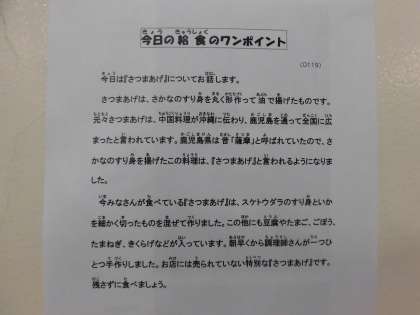 今日の給食のワンポイント
(0119)
今日は『さつまあげ』についてお話します。
さつまあげは、さかなのすり身を丸く形作って油で揚げたものです。
元々さつまあげは、中国料理が沖縄に伝わり、鹿児島を通って全国に広
まったと言われています。鹿児島県は昔「薩摩」と呼ばれていたので、さ
かなのすり身を揚げたこの料理は、『さつまあげ』と言われるようになりま
した。
今みなさんが食べている『さつまあげ』は、スケトウダラのすり身といか
を細かく切ったものを混ぜて作りました。この他にも豆腐やたまご、ごぼう、
たまねぎ、きくらげなどが入っています。朝早くから調理師さんが一つひ
とつ手作りしました。お店には売られていない特別な『さつまあげ』です。
残さずに食べましょう。